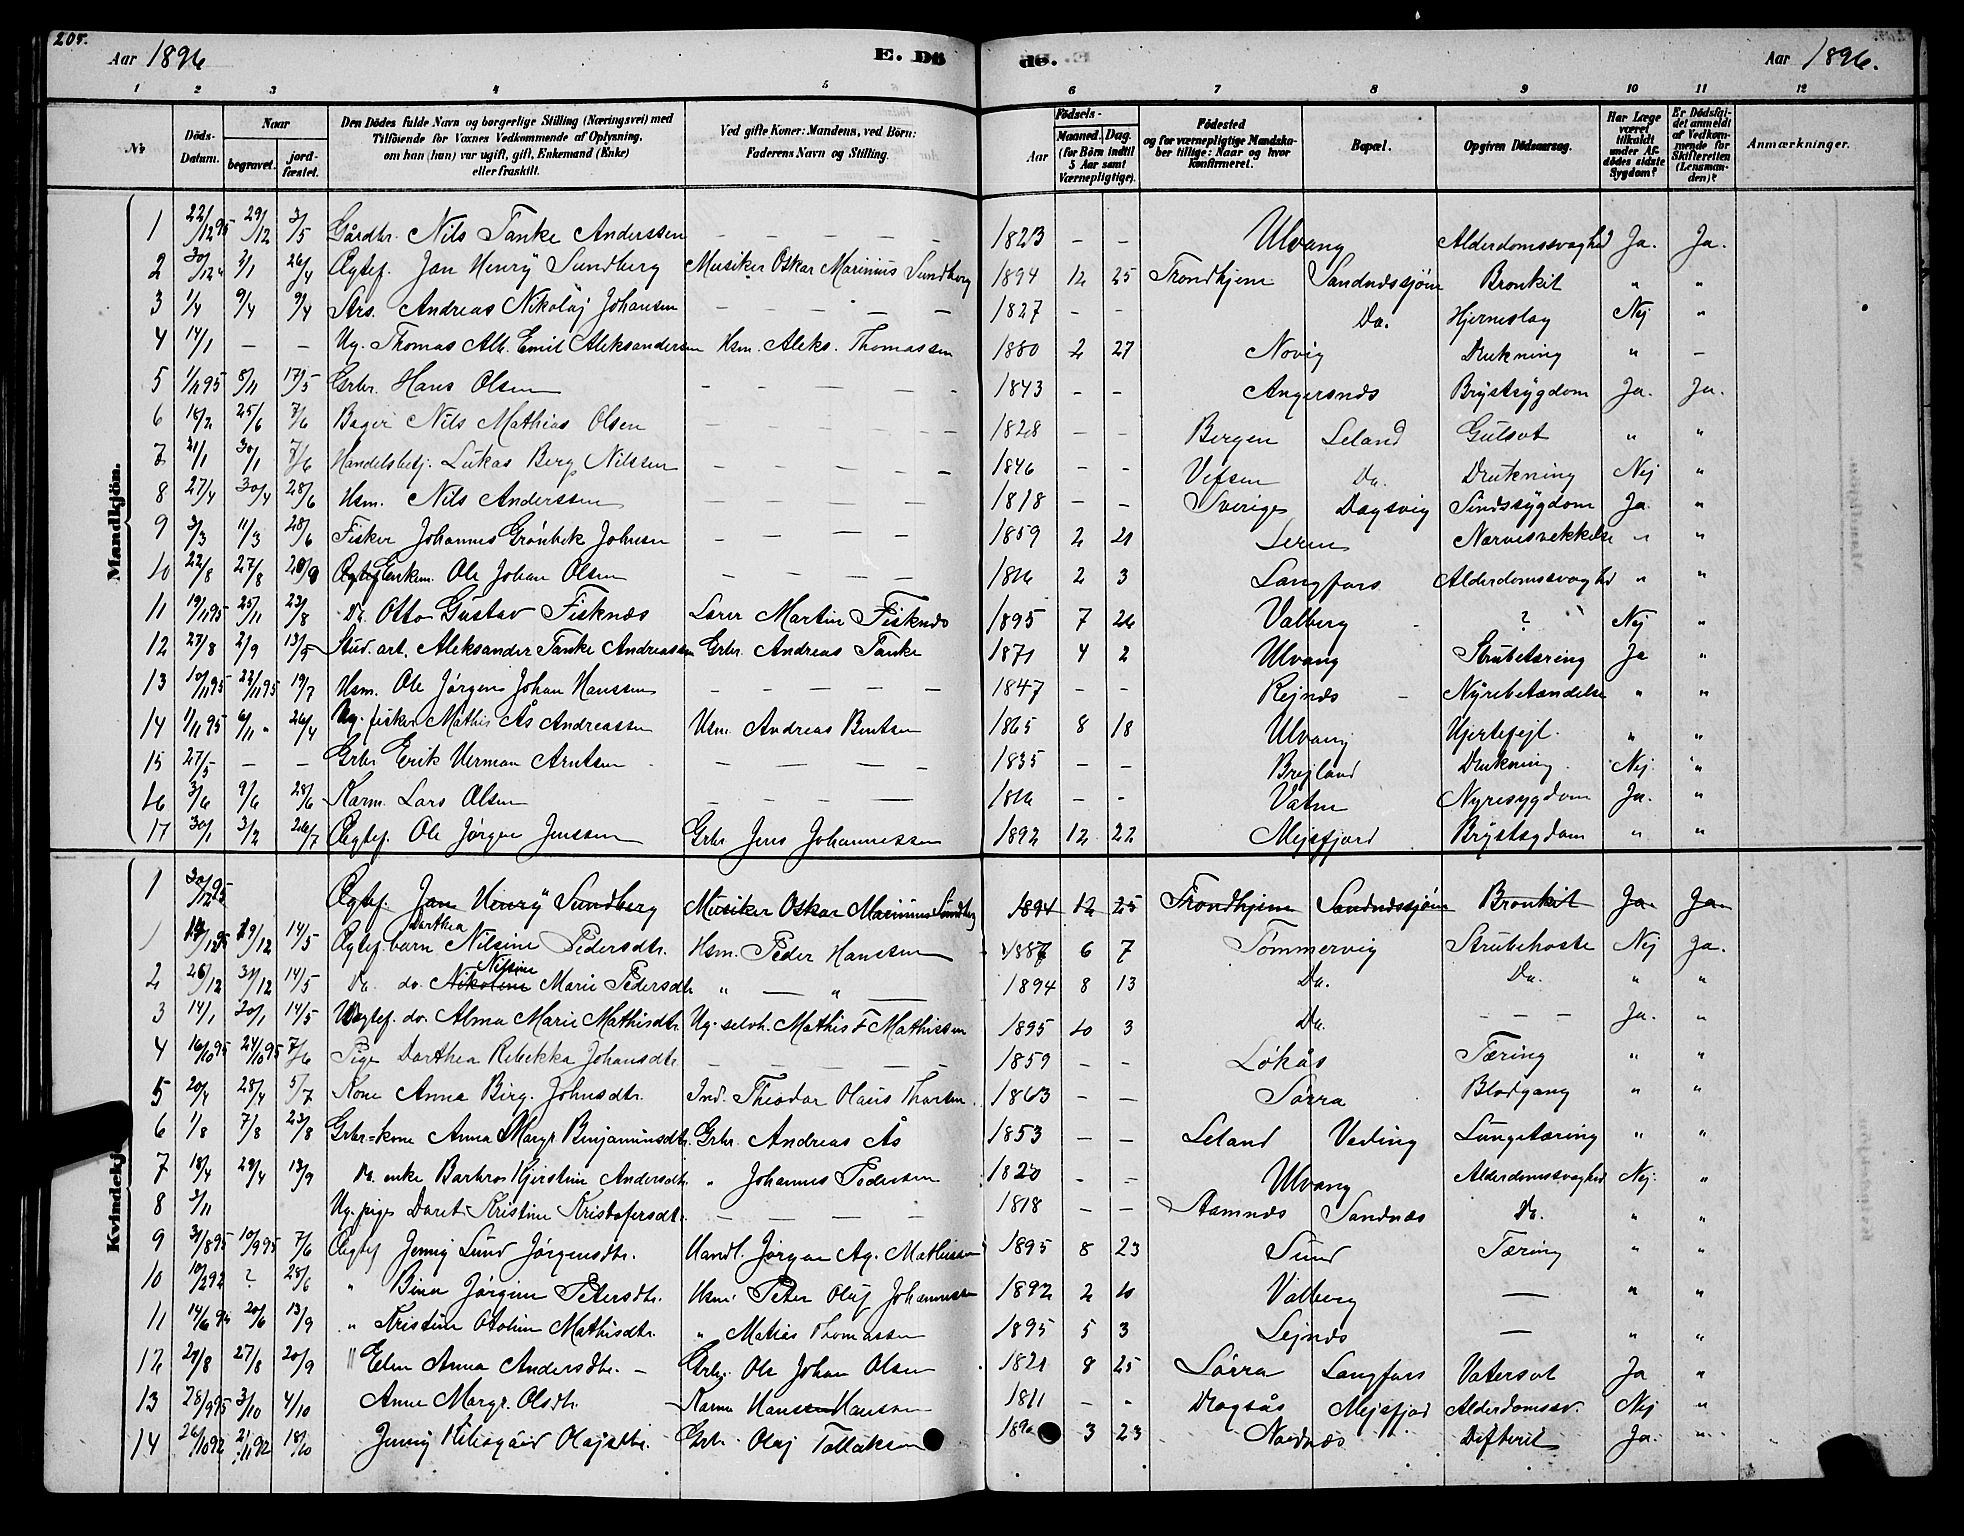 205.
Aar 1896
E. Dö
de.
Aar 1896.
1 2 3 4 5 6 7 8 9 10 11 12
No
Döds-Datum.
Naar
begravet.
jord-fæstet.
Den Dödes fulde Navn og borgerlige Stilling (Næringsvei) med
Tilföiende for Voxnes Vedkommende af Oplysning,
om han (hun) var ugift, gift, Enkemand (Enke)
eller fraskilt.
Ved gifte Koner: Mandens, ved Börn:
Faderens Navn og Stilling.
Födsels-
Aar
Maaned. Dag.
(for Börn indtil
5 Aar samt
Værnepligtige).
Födested
og for værnepligtige Mandska-
ber tillige: Naar og hvor
konfirmeret.
Bopæl.
Opgiven Dödsaarsag.
Har Læge
været
tilkaldt
under Af-
dödes sidste
Sygdom?
Er Dödsfal-
det anmeldt
af Vedkom-
mende for
Skifteretten
(Lensman-
den)?
Anmærkninger.
Mandkjön.
1 22/12 95 29/12 3/5 Gårdbr. Nils Tanke Anderssen — 1823 — — Ulvang Alderdomssvaghed Ja. Ja.
2 30/12 " 3/1 26/4 Ægtef. Jan Henrÿ Sundberg Musiker Oskar Marinius Sundberg 1894 12 25 Trondhjem Sandnæssjøen Bronkit " "
3 1/4 9/4 9/4 Strs. Andreas Nikolaj Johansen — 1827 — — Do. Hjerneslag Nej "
4 14/1 — — Ug. Thomas Alb. Emil Aleksandersen Hsm. Aleks. Thomassen 1880 2 27 Novig Drukning " —
5 1/11 95 8/11 17/5 Grbr. Hans Olsen — 1843 — — Angersnæs Brystsygdom Ja. Ja.
6 18/2 25/6 7/6 Bager Nils Mathias Olsen — 1828 — — Bergen Leland Gulsot " "
7 21/1 30/1 7/6 Handelsbetj. Lukas Berg Nilssen — 1846 — — Vefsen Do. Drukning Nej "
8 27/4 30/4 28/6 Hsm. Nils Anderssen — 1818 — — Sverige Dagsvig Sindssygdom Ja. "
9 3/3 11/3 28/6 Fisker Johannes Grønbek Johnsen — 1859 2 21 Leren Nervesvekkelse " "
10 22/8 27/8 20/9 Enkem. Ole Johan Olsen — 1816 2 3 Langfors Alderdomssvaghed " "
11 19/11 95 25/11 23/8 Do. Otto Gustav Fisknæs Lærer Martin Fisknæs 1895 7 26 Valberg ? Nej "
12 27/8 2/9 13/9 Stud. art. Aleksander Tanke Andreassen Grbr. Andreas Tanke 1871 4 2 Ulvang Strubetæring Ja "
13 10/11 95 22/11 95 19/7 Hsm. Ole Jørgen Johan Hanssen — 1847 — — Rejnæs Nyrebetændelse " "
14 1/11 95 6/11 " 26/4 Ug. fisker Mathis Ås Andreassen Hsm. Andreas Bentsen 1865 8 18 Ulvang Hjertefejl. " "
15 27/5 — — Grbr Erik Herman Arntsen — 1835 — — Brejland Drukning. Nej "
16 3/6 9/6 28/6 Karm. Lars Olsen — 1816 — — Vatne Nyresygdom Ja. "
17 30/1 3/2 26/7 Ægtef. Ole Jørgen Jenssen Grbr Jens Johannessen 1892 12 22 Mejsfjord Brystsygdom " "
Kvindekj.
1 30/12 95 Ægtef. Jan Henrÿ Sundberg Musiker Oskar Marinius Sundberg 1894 12 25 Trondhjem Sandnæssjøen Bronkit Ja Ja
1 29/12 14/5 Ægtef. barn Dorthea Nilsine Pedersdtr. Hsm. Peder Hanssen 1887 6 7 Tømmervig Strubehoste Nej Ja.
2 26/12 31/12 14/5 Do. do. Nikoline Nilsine Marie Pedersdtr " — " — 1894 8 13 Do. Do. " "
3 14/1 30/1 14/5 Uægtef. do. Alma Marie Mathisdtr. Ug. selvh. Mathis F Mathissen 1895 10 3 Do. — — — Ja. "
4 16/10 95 24/10 95 7/6 Pige Dorthea Rebekka Johansdtr. — 1859 — — Løkås Tæring " "
5 20/4 28/4 5/7 Kone Anna Birg. Johnsdtr. Ind. Theodor Olaus Thorsen 1863 — — Sørra Blodgang " "
6 1/8 7/8 23/8 Grbr=kone Anna Margr. Benjaminsdtr. Grbr. Andreas Ås 1853 — — Leland Veding Lungetæring " "
7 18/4 29/4 13/9 Do. enke Barbro Kjerstine Andersdtr. " Johannes Pedersen 1820 — — Ulvang Alderdomssvaghed Nej. "
8 3/11 Ug. pige Doret Kristine Kristofersdtr. — 1818 — — Aamnæs Sandnæs Do. " "
9 31/8 95 10/9 95 7/6 Ægtef Jenny Lund Jørgensdtr. Handl. Jørgen Ag. Mathissen 1895 8 23 Sund Tæring " "
10 10/2 92 ? 28/6 " Bina Jørgine Petersdtr. Hsm. Peter Oluf Johannessen 1892 2 10 Valberg — " "
11 14/6 20/6 13/9 " Kristine Otoline Mathisdtr. " Matias Thomassen 1895 5 3 Lejnæs — " "
12 21/8 27/8 20/9 " Elen Anna Andersdtr. — Grbr. Ole Johan Olsen 1821 8 25 Sørra Langfors Vatersot Ja "
13 28/9 95 3/10 4/10 Anne Margr. Olsdtr. Karm Hans Hanssen 1811 — — Dragsås Mejsfjord Alderdomssv. Nej "
14 26/10 92 2/11 92 18/10 Jenny Olajsdtr. Grbr. Olaj Tollaksen 3 23 Nordnæs Difterit Ja. "